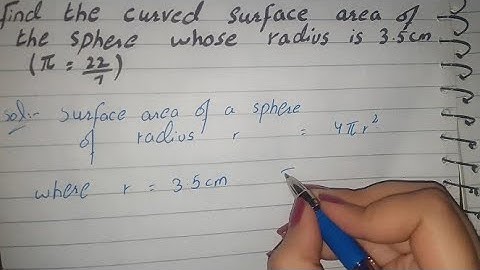 find the curved surface area of
the sphere whose radius is 3.5cm
(π = 22/7)
Sol:- Surface area of a sphere
of radius r = 4πr²
where r = 3.5cm